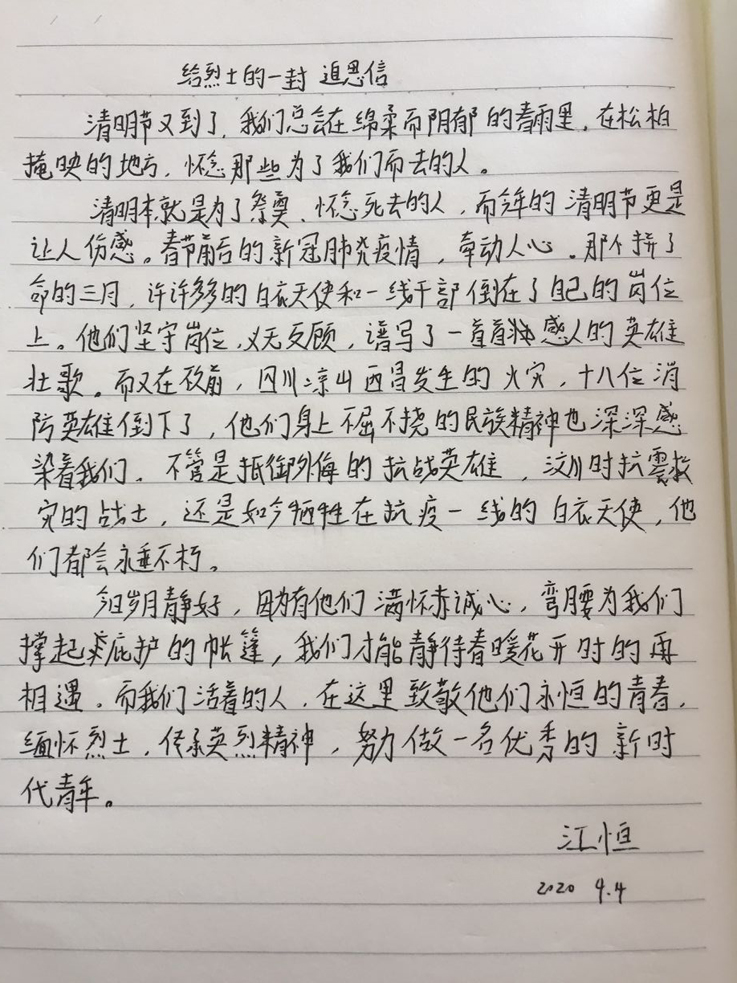 给烈士的一封 追思信
清明节又到了，我们总会在绵柔而阴郁的春雨里，在松柏
掩映的地方，怀念那些为了我们而去的人。
清明本就是为了祭奠、怀念死去的人，而今年的清明节更是
让人伤感。春节前后的新冠肺炎疫情，牵动人心。那个拼了
命的三月，许许多多的白衣天使和一线干部倒在了自己的岗位
上。他们坚守岗位，义无反顾，谱写了一首首感人的英雄
壮歌。而又在改前，四川凉山西昌发生的火灾，十八位消
防英雄倒下了，他们身上不屈不挠的民族精神也深深感
染着我们。不管是抵御外侮的抗战英雄，汶川时抗震救
灾的战士，还是如今牺牲在抗疫一线的白衣天使，他
们都会永垂不朽。
今日岁月静好，因为有他们满怀赤诚心，弯腰为我们
撑起庇护的帐篷，我们才能静待春暖花开时的再
相遇。而我们活着的人，在这里致敬他们永恒的青春，
缅怀烈士，传承英烈精神，努力做一名优秀的新时
代青年。
江恒
2020 4.4